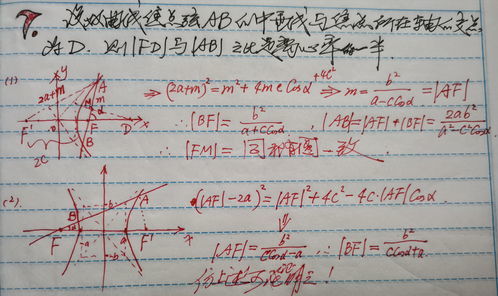 7. 设双曲线焦点弦AB的中垂线与焦点所在主轴的交点
为D. 则|FD|与|AB|之比是离心率的一半
(1)
y
2a+m
A
m
M
α
F'
o
F
D
x
B
2C
⇒ (2a+m)²=m²+4mc Cosα+4C² ⇒ m= b²/(a-cCosα) =|AF|
∴|BF|= b²/(a+cCosα), |AB|=|AF|+|BF|= 2ab²/(a²-c²Cos²α)
∴|FM|= 一致.
(2).
A
B
α
F
F'
x
(|AF|-2a)²=|AF|²+4C²-4C·|AF|Cosα
⇓
|AF|= b²/(cCosα-a), ∴|BF|= b²/(cCosα+a)
仿上述可证明之!